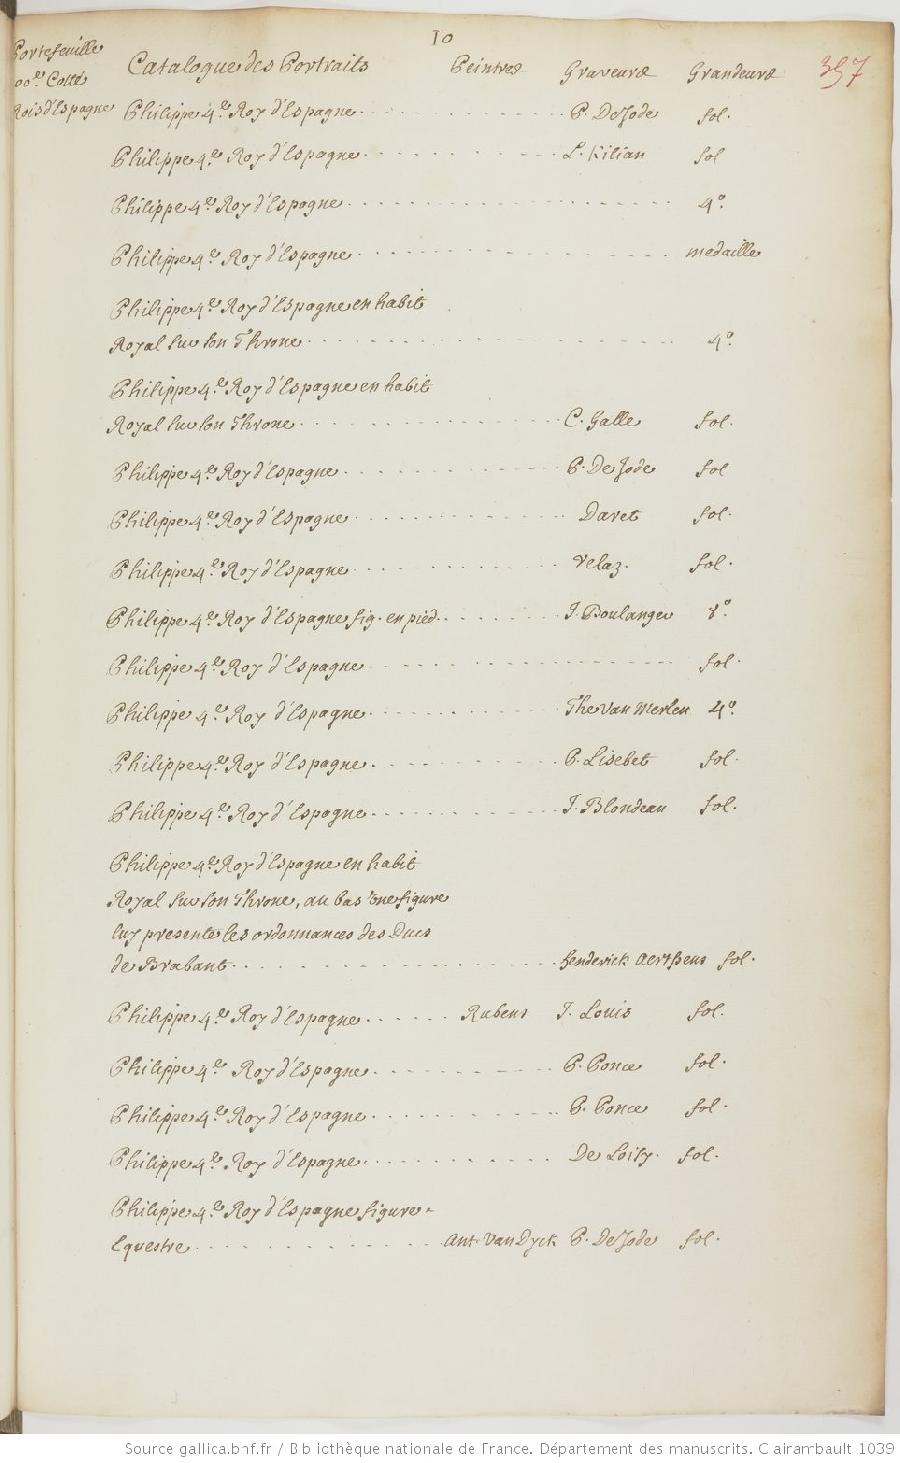 10
Portefeuille Catalogue des Portraits Peintres Graveurs Grandeurs 357
Cotté
Rois d'Espagne Philippe 4.e Roy d'Espagne P. De Jode fol.
Philippe 4.e Roy d'Espagne L. Kilian fol
Philippe 4.e Roy d'Espagne 4.o
Philippe 4.e Roy d'Espagne medaille
Philippe 4.e Roy d'Espagne en habit
Royal sur son Throne 4.o
Philippe 4.e Roy d'Espagne en habit
Royal sur son Throne C. Galle fol.
Philippe 4.e Roy d'Espagne P. De Jode fol
Philippe 4.e Roy d'Espagne Daret fol.
Philippe 4.e Roy d'Espagne Velaz. fol.
Philippe 4.e Roy d'Espagne fig. en pied. J. Boulanger 8.o
Philippe 4.e Roy d'Espagne fol.
Philippe 4.e Roy d'Espagne The Van Merlen 4.o
Philippe 4.e Roy d'Espagne P. Lisebet fol.
Philippe 4.e Roy d'Espagne J. Blondeau fol.
Philippe 4.e Roy d'Espagne en habit
Royal sur son Throne, au bas une figure
luy presente les ordonnances des Ducs
de Brabant. henderick Aertsens fol.
Philippe 4.e Roy d'Espagne Rubens J. Louis fol.
Philippe 4.e Roy d'Espagne P. Ponce fol.
Philippe 4.e Roy d'Espagne P. Ponce fol.
Philippe 4.e Roy d'Espagne De Loisy. fol.
Philippe 4.e Roy d'Espagne figure
Equestre Ant. Van Dyck P. De Jode fol.
Source gallica.bnf.fr / Bibliothèque nationale de France. Département des manuscrits. Clairambault 1039